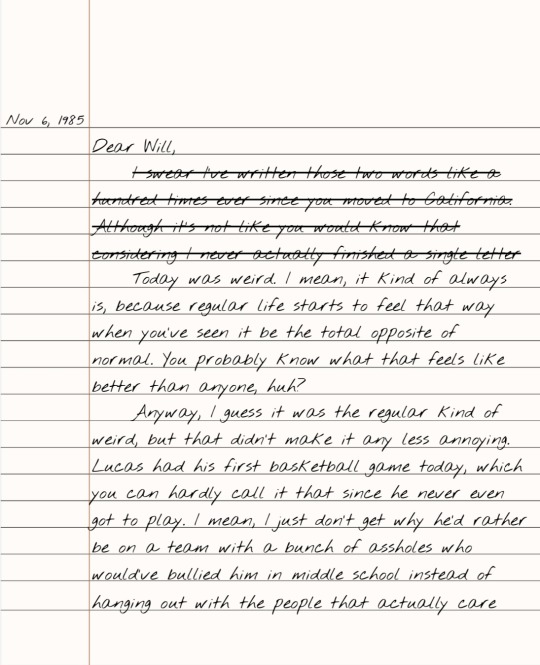 Nov 6, 1985
Dear Will,
I swear I've written those two words like a
hundred times ever since you moved to California.
Although it's not like you would know that
considering I never actually finished a single letter
Today was weird. I mean, it kind of always
is, because regular life starts to feel that way
when you've seen it be the total opposite of
normal. You probably know what that feels like
better than anyone, huh?
Anyway, I guess it was the regular kind of
weird, but that didn't make it any less annoying.
Lucas had his first basketball game today, which
you can hardly call it that since he never even
got to play. I mean, I just don't get why he'd rather
be on a team with a bunch of assholes who
would've bullied him in middle school instead of
hanging out with the people that actually care